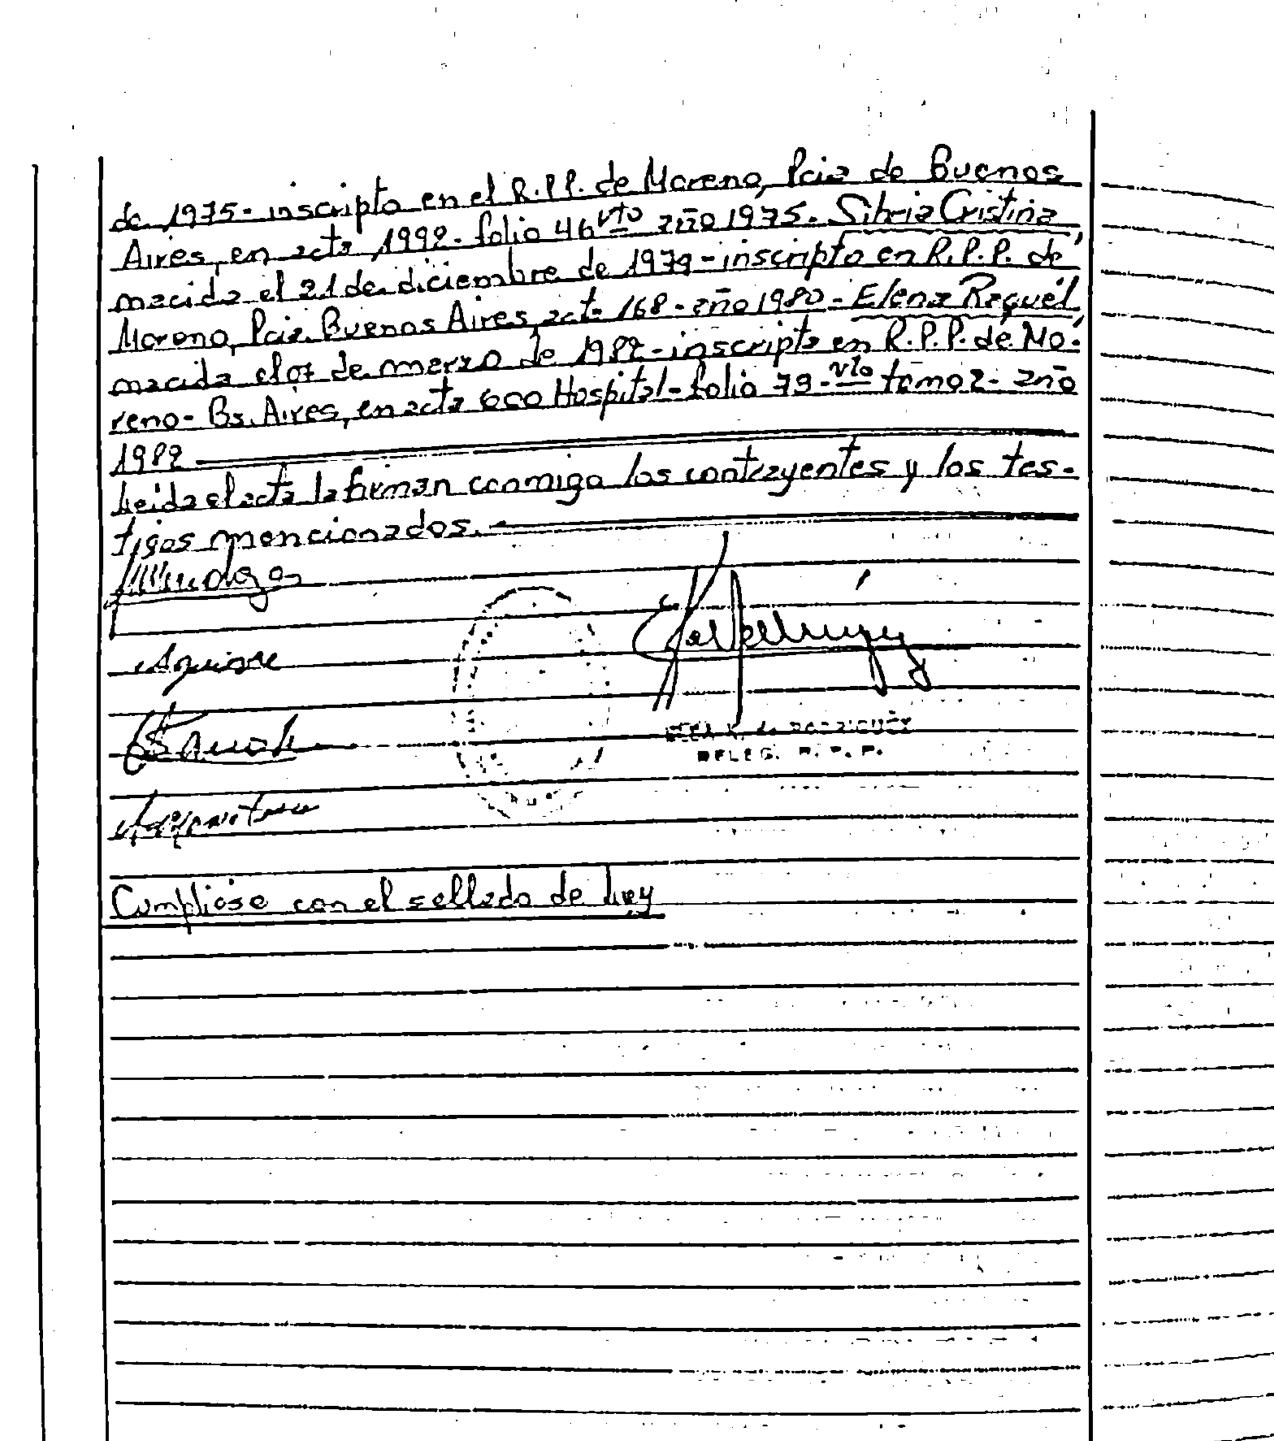 de 1975- inscripto en el R.P.P. de Moreno, Pcia de Buenos
Aires, en acta 1992- folio 46 vto año 1975. Silvia Cristina
nacida el 21 de diciembre de 1979- inscripta en R.P.P. de
Moreno, Pcia. Buenos Aires, acta 168- año 1980- Elena Raquel
nacida el 07 de marzo de 1982- inscripta en R.P.P. de Mo-
reno- Bs. Aires, en acta 600 Hospital- folio 79- vto tomo 2- año
1982
Leida el acta la firman conmigo los contrayentes y los tes-
tigos mencionados.
Aguirre
RODRIGUEZ
DELEG. R. P. P.
Cumpliose con el sellado de Ley